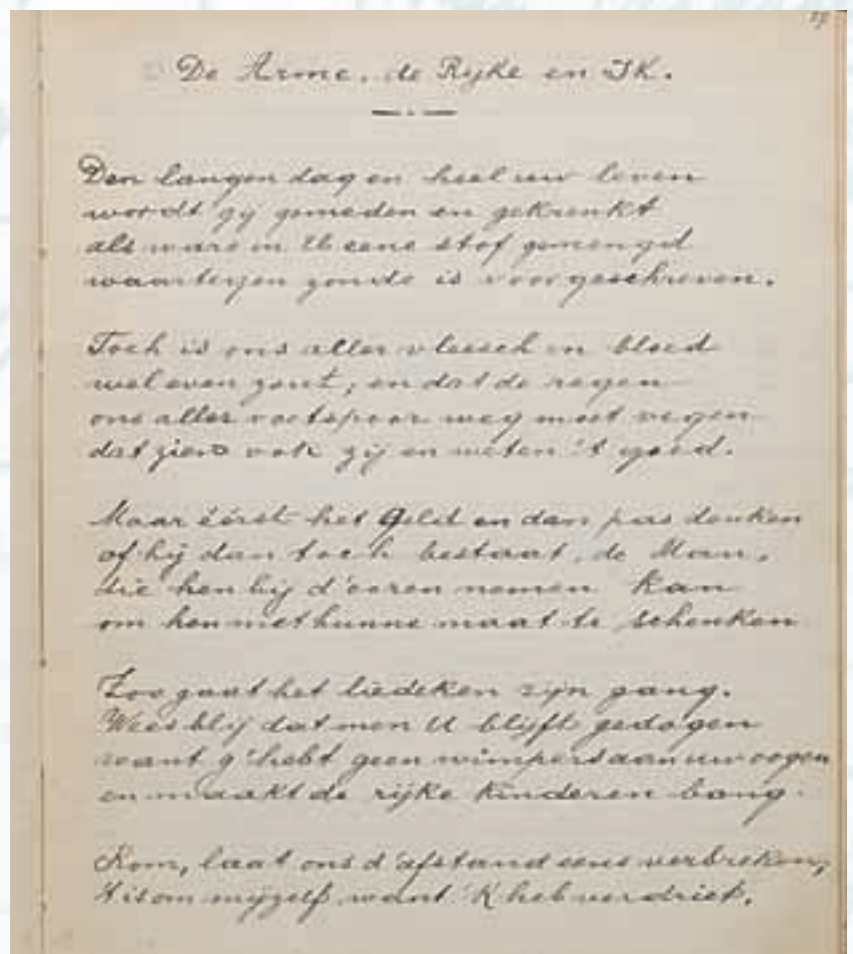 De Arme, de Rijke en Ik.
Den langen dag en heel uw leven
wordt gij gemeden en gekrenkt
als ware in U eene stof gemengd
waartegen zonde is voorgeschreven.
Toch is ons aller vleesch en bloed
wel even zout, en dat de regen
ons aller voetspoor weg moet vegen
dat zien ook zij en weten 't goed.
Maar éérst het geld en dan pas denken
of hij dan toch bestaat, de Man,
die hen bij d'ooren nemen kan
om hen met hunne maat te schenken
Zoo gaat het liedeken zijn gang.
Wees blij dat men U blijft gedogen
want g'hebt geen wimpers aan uw oogen
en maakt de rijke kinderen bang.
Kom, laat ons d'afstand eens verbreken,
't is om mijzelf, want 'K heb verdriet.